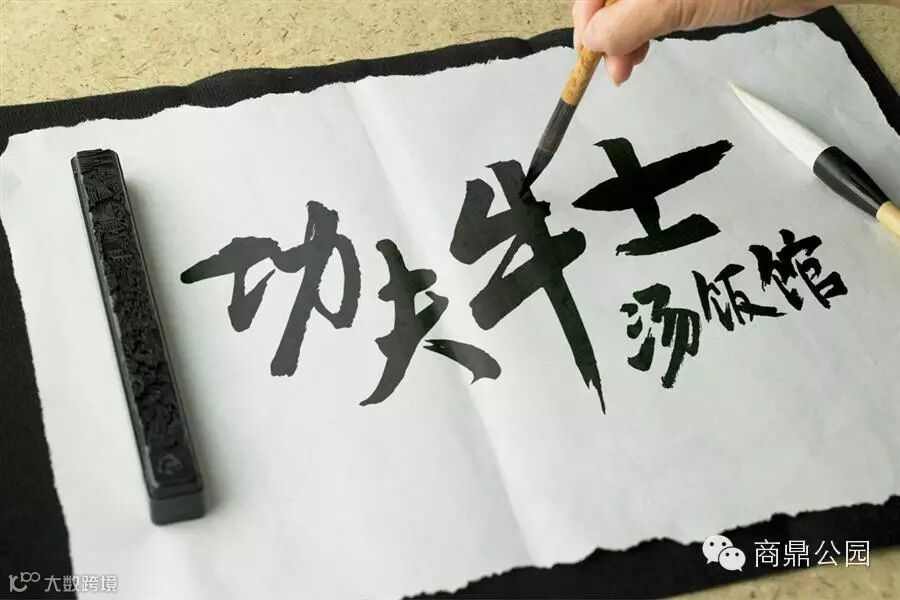 功夫牛士
汤饭馆
商鼎公园
大数跨境